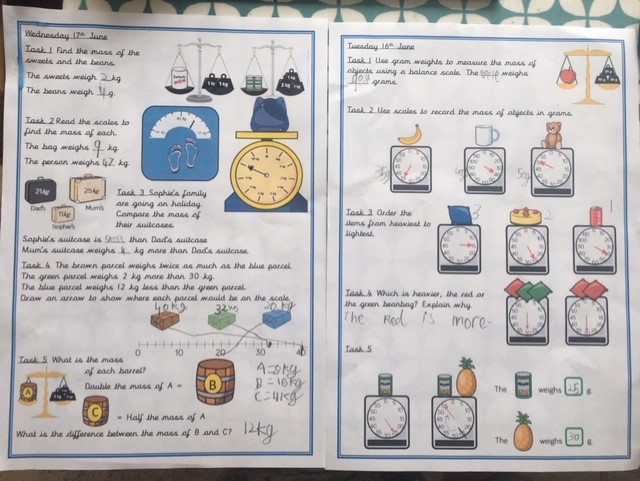 Wednesday 17th June
Task 1 Find the mass of the
sweets and the beans.
The sweets weigh 2 kg
The beans weigh 4 g.
Task 2 Read the scales to
find the mass of each.
The bag weighs 9 kg.
The person weighs 42 kg.
21kg
25kg
11kg
Dad's
Mum's
Sophie's
Task 3 Sophie's family
are going on holiday.
Compare the mass of
their suitcases.
Sophie's suitcase is than Dad's suitcase
Mum's suitcase weighs 4 kg more than Dad's suitcase.
Task 4 The brown parcel weighs twice as much as the blue parcel.
The green parcel weighs 2 kg more than 30 kg.
The blue parcel weighs 12 kg less than the green parcel.
Draw an arrow to show where each parcel would be on the scale.
40kg
20kg
0 10 20 30 40
Task 5 What is the mass
of each barrel?
A
Double the mass of A =
B
A=8kg
B=16kg
C=4kg
C
= Half the mass of A
What is the difference between the mass of B and C? 12kg
Tuesday 16th June
Task 1 Use gram weights to measure the mass of
objects using a balance scale. The weighs
grams.
Task 2 Use scales to record the mass of objects in grams.
Task 3 Order the
items from heaviest to
lightest.
3
2
1
Task 4 Which is heavier, the red or
the green beanbag? Explain why.
The Red is more.
Task 5
The weighs 25 g.
The weighs 30 g.